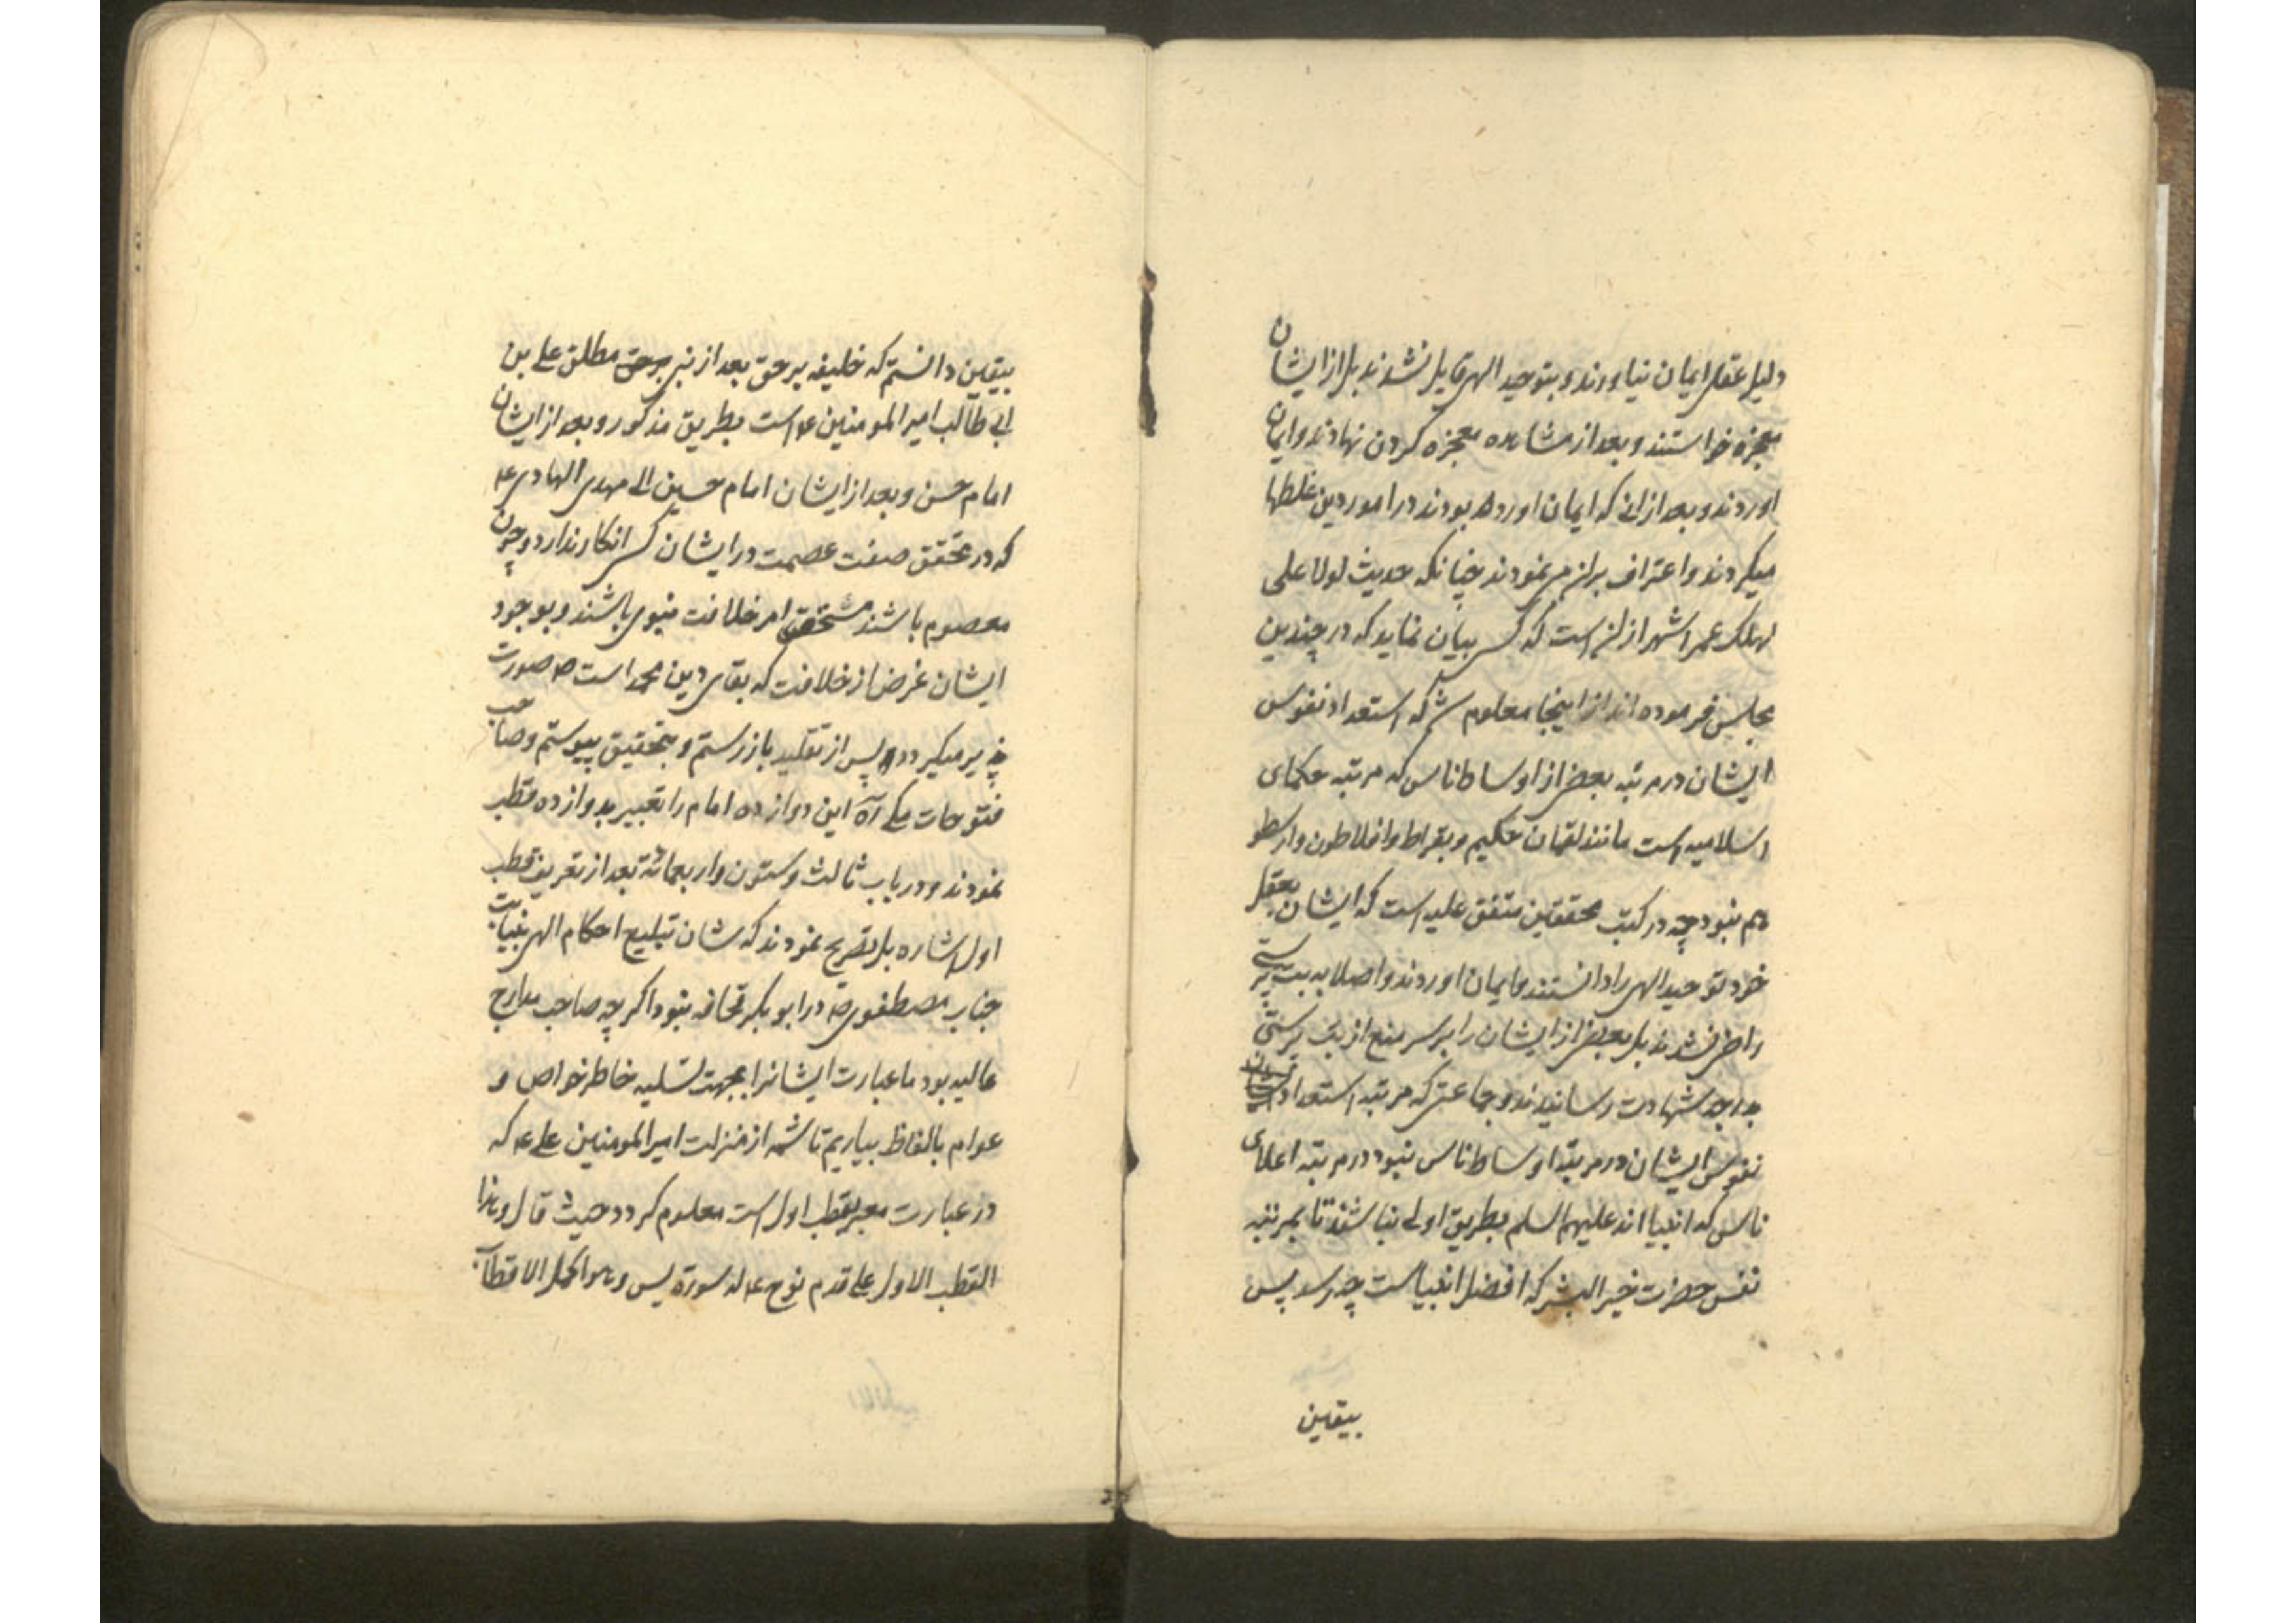 دلیل عقلی ایمان نیاوردند و بتوحید الهی قایل نشدند بل از ایشان
معجزه خواستند و بعد از مشاهده معجزه کردن نهادند و ایمان
اوردند و بعد از انی که ایمان اورده بودند در امور دین غلطها
میکردند و اعتراف بران می نمودند چنانکه حدیث لولا علی
لهلک عمر اشهر از ان است که کسی بیان نماید که در چندین
مجلس فرموده اند از اینجا معلوم شد که استعداد نفوس
ایشان در مرتبه بعضی از اوساط ناس که مرتبه حکمای
اسلامیه است مانند لقمان حکیم و بقراط و افلاطون و ارسطو
هم نبود چه در کتب محققین متفق علیه است که ایشان بعقل
خود توحید الهی را دانستند و ایمان اوردند و اصلا به بت پرستی
راضی نشدند بل بعضی از ایشان را بر سر منع از بت پرستی
بدرجه شهادت رسانیدند و جماعتی که مرتبه استعداد
نفوس ایشان در مرتبه اوساط ناس نبود در مرتبه اعلای
ناس که انبیا اند علیهم السلم بطریق اولی نباشند تا بمرتبه
نفس حضرت خیر البشر که افضل انبیاست چه رسد پس
بیقین
بیقین دانستم که خلیفه بر حق بعد از نبی بر حق مطلق علی بن
ابی طالب امیر المومنین ع است بطریق مذکور و بعد از ایشان
امام حسن و بعد از ایشان امام حسین الی مهدی الهادی ع
که در تحقق صفت عصمت در ایشان کسی انکار ندارد و چون
معصوم باشند مستحق امر خلافت نبوی باشند و بوجود
ایشان غرض از خلافت که بقای دین محمد است ص صورت
پذیر میکردد پس از تقلید باز رستم و بتحقیق پیوستم و صاحب
فتوحات مکی این دوازده امام را تعبیر بدوازده قطب
نمودند و در باب ثالث و ستون و اربعمائة بعد از تعریف قطب
اول اشاره بل تصریح نمودند که شان تبلیغ احکام الهی بنیابت
جناب مصطفوی ص در ابو بکر قحافه نبود اکرچه صاحب مدارج
عالیه بود ما عبارت ایشانرا بجهت تسلیه خاطر خواص و
عوام بالفاظ بیاریم تا شمه از منزلت امیر المومنین علی ع که
در عبارت معبر بقطب اول است معلوم کردد حیث قال و هذا
القطب الاول علی قدم نوح ع له سورة یس و هو اکمل الاقطاب